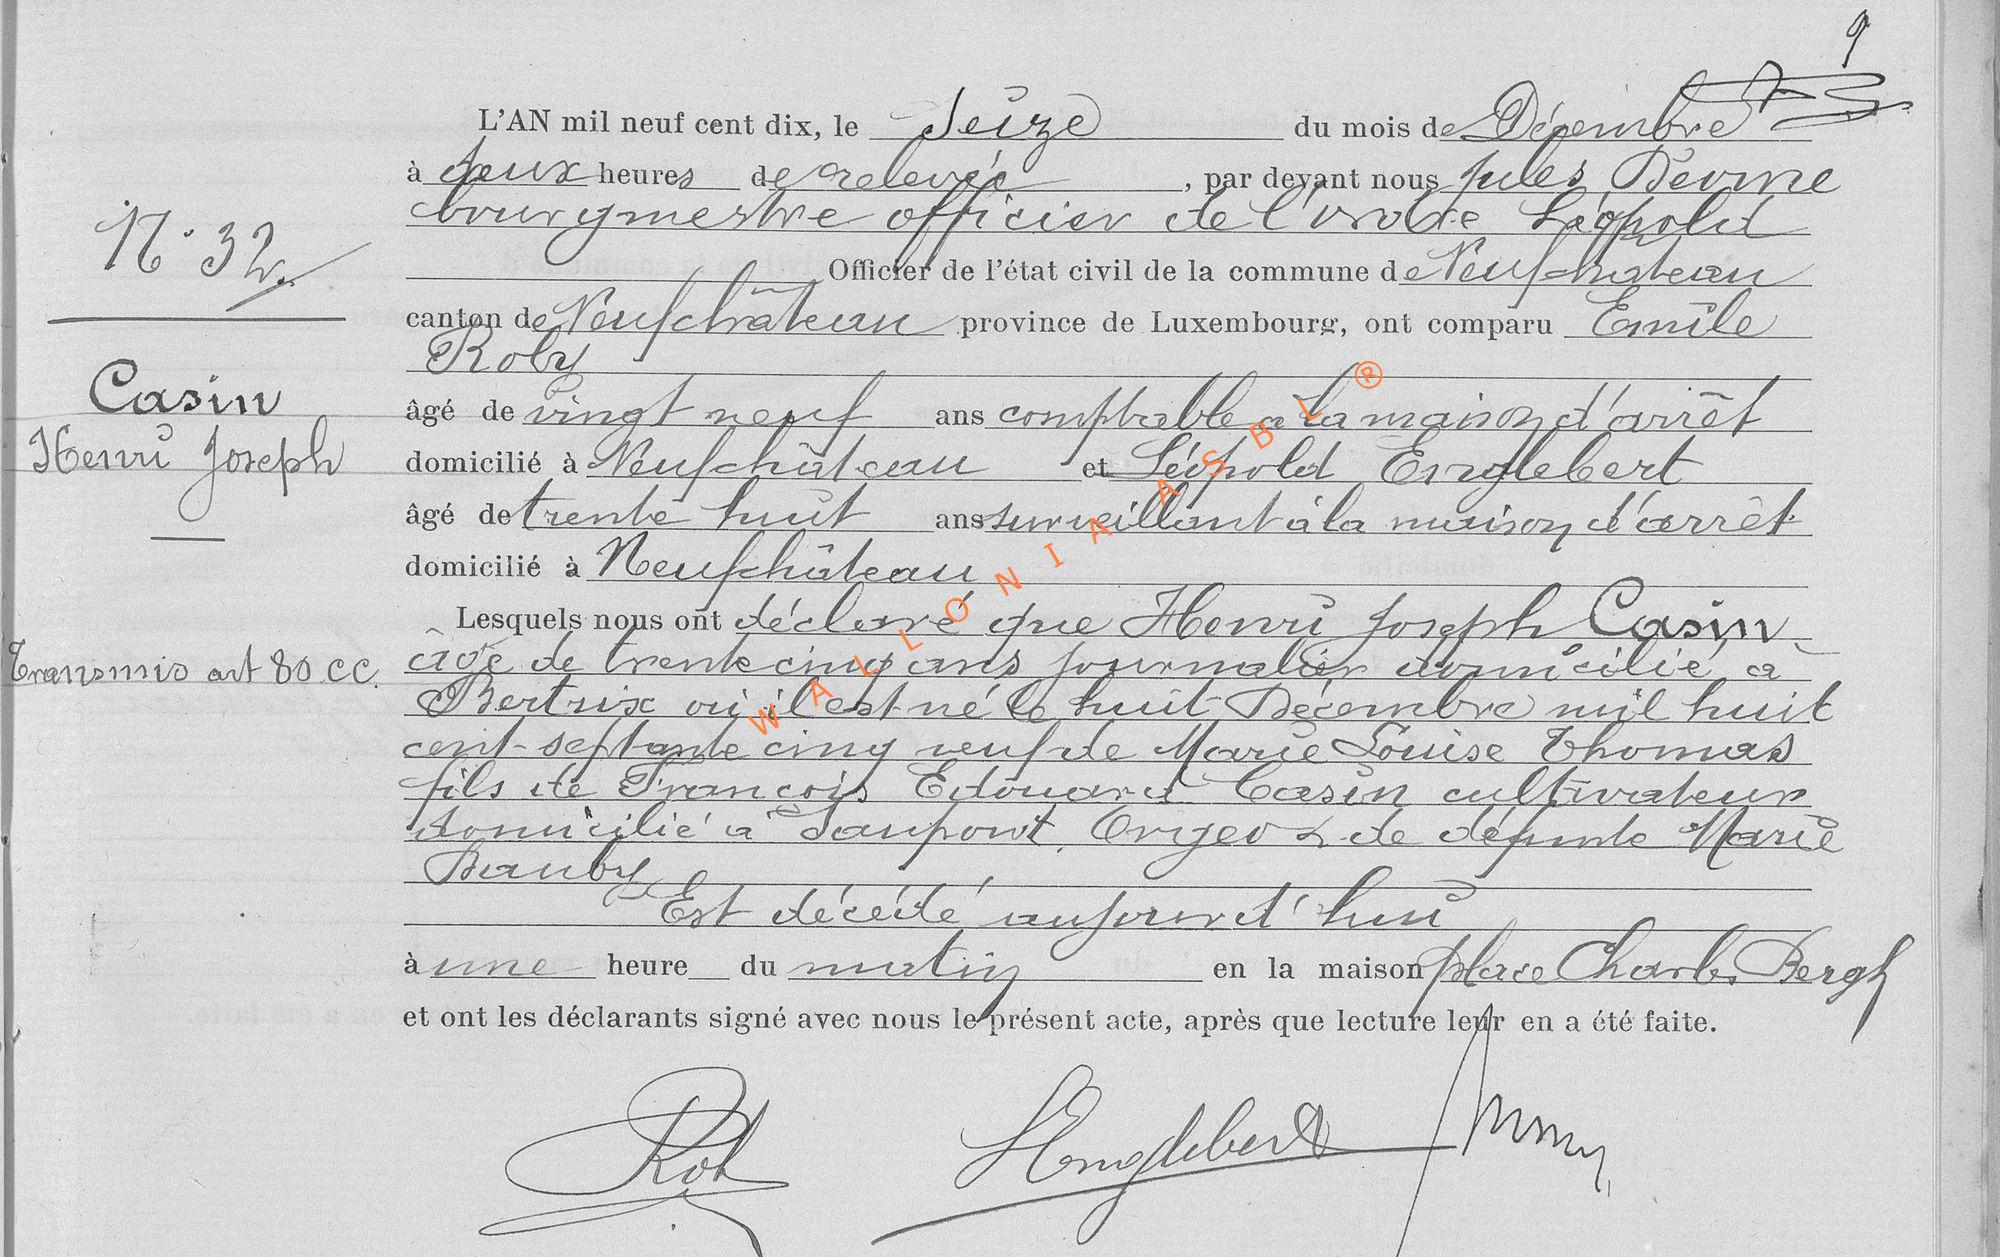 9
L'AN mil neuf cent dix, le Seize du mois de Décembre
à deux heures de relevée, par devant nous Jules
bourgmestre officier de l'ordre Léopold
N° 32
Officier de l'état civil de la commune de Neufchâteau
canton de Neufchâteau province de Luxembourg, ont comparu Emile
Roby
Casin
Henri Joseph
âgé de vingt neuf ans comptable à la maison d'arrêt
domicilié à Neufchâteau et Léopold Englebert
âgé de trente huit ans surveillant à la maison d'arrêt
domicilié à Neufchâteau
Lesquels nous ont déclaré que Henri Joseph Casin
Transmis art 80 CC.
âgé de trente cinq ans journalier domicilié à
Bertrix où il est né le huit Décembre mil huit
cent septante cinq veuf de Marie Louise Thomas
fils de François Edouard Casin cultivateur
domicilié à Saupont, Orgeo & de défunte Marie
Bauby
Est décédé aujourd'hui
à une heure du matin en la maison place Charles Bergh
et ont les déclarants signé avec nous le présent acte, après que lecture leur en a été faite.
Rob
LEnglebert
WALLONIA ASBL ®